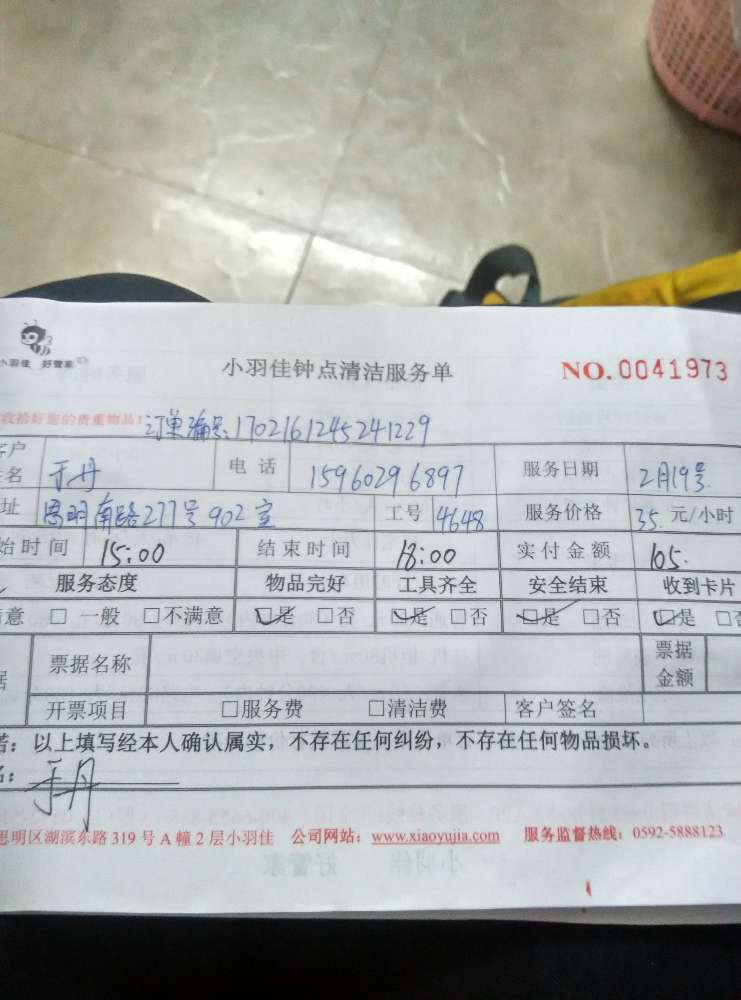 小羽佳 好管家
小羽佳钟点清洁服务单 NO.0041973
收拾好您的贵重物品! 订单编号:1702161245241229
客户姓名 于丹 电话 15960296897 服务日期 2月19号
址 思明南路277号902室 工号 4648 服务价格 35 元/小时
始时间 15:00 结束时间 18:00 实付金额 105.
服务态度 物品完好 工具齐全 安全结束 收到卡片
意 □ 一般 □不满意 ☑是 □否 ☑是 □否 ☑是 □否 ☑是 □否
据 票据名称 票据金额
开票项目 □服务费 □清洁费 客户签名
诺:以上填写经本人确认属实,不存在任何纠纷,不存在任何物品损坏。
名: 于丹
思明区湖滨东路319号A幢2层小羽佳 公司网站:www.xiaoyujia.com 服务监督热线:0592-5888123